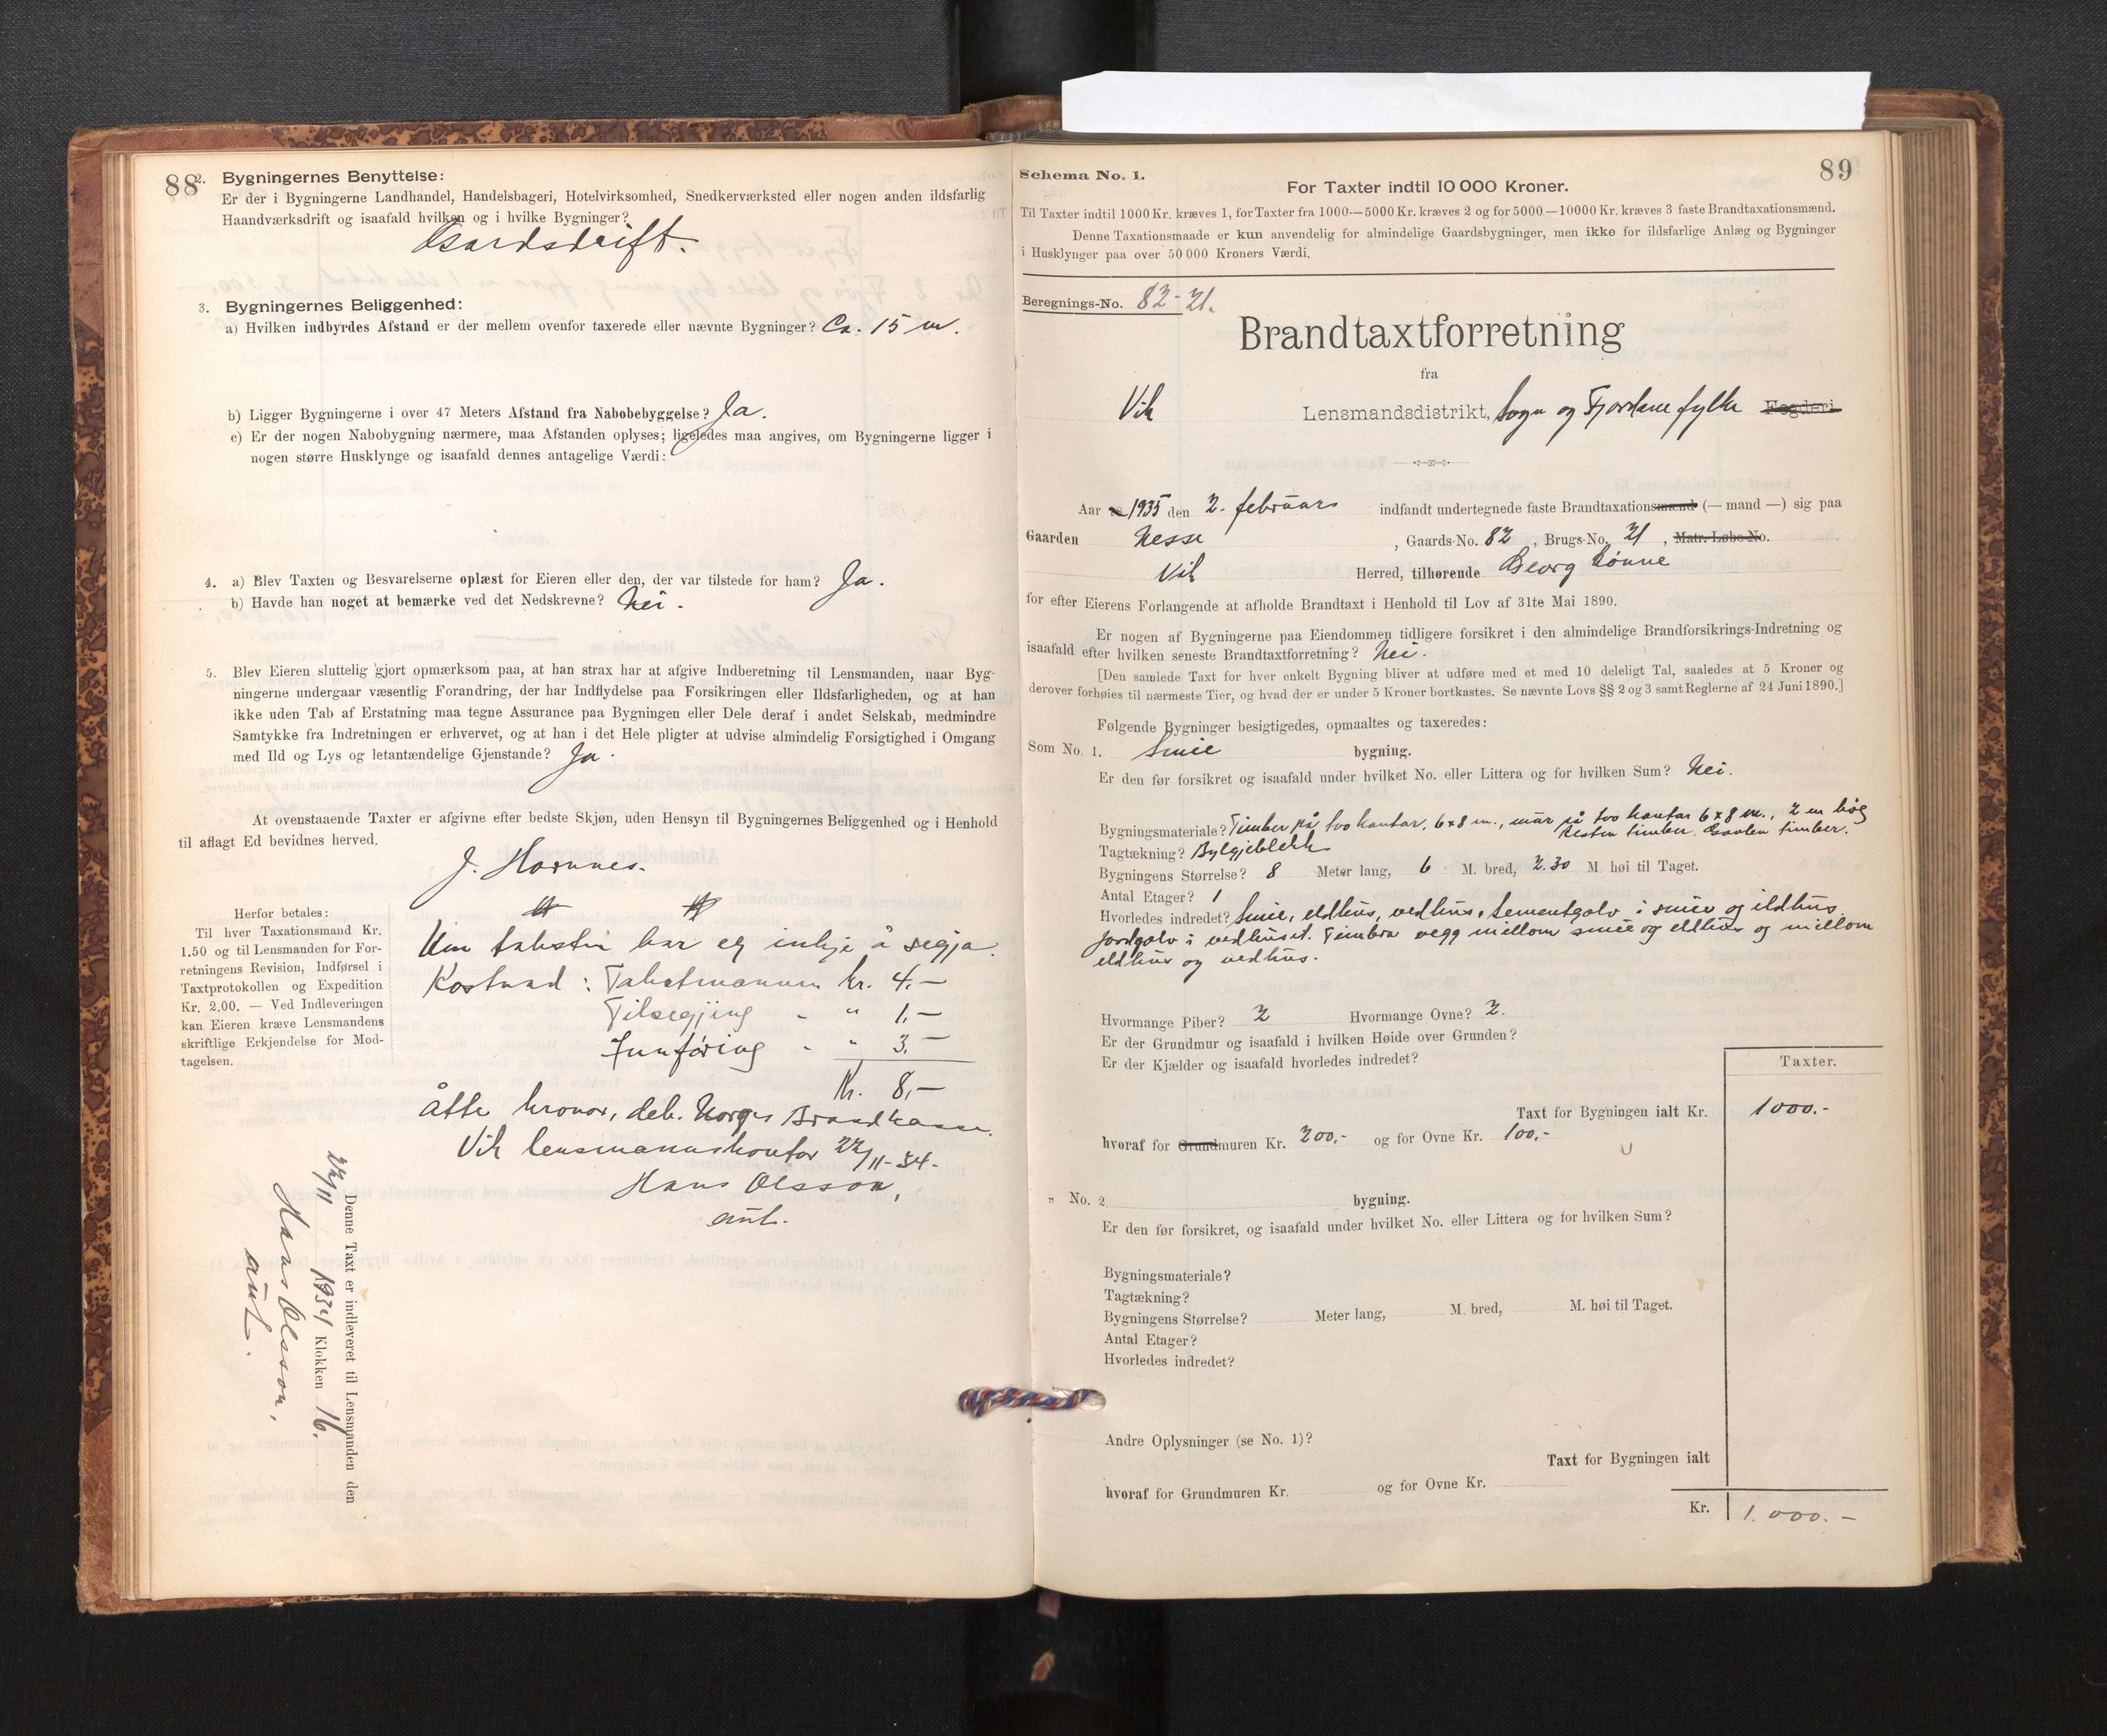 88
2. Bygningernes Benyttelse:
Er der i Bygningerne Landhandel, Handelsbageri, Hotelvirksomhed, Snedkerværksted eller nogen anden ildsfarlig
Haandværksdrift og isaafald hvilken og i hvilke Bygninger?
Gardsdrift.
3. Bygningernes Beliggenhed:
a) Hvilken indbyrdes Afstand er der mellem ovenfor taxerede eller nævnte Bygninger? Ca. 15 m.
b) Ligger Bygningerne i over 47 Meters Afstand fra Nabobebyggelse? Ja.
c) Er der nogen Nabobygning nærmere, maa Afstanden oplyses; ligeledes maa angives, om Bygningerne ligger i
nogen større Husklynge og isaafald dennes antagelige Værdi:
4. a) Blev Taxten og Besvarelserne oplæst for Eieren eller den, der var tilstede for ham? Ja.
b) Havde han noget at bemærke ved det Nedskrevne? Nei.
5. Blev Eieren sluttelig gjort opmærksom paa, at han strax har at afgive Indberetning til Lensmanden, naar Byg-
ningerne undergaar væsentlig Forandring, der har Indflydelse paa Forsikringen eller Ildsfarligheden, og at han
ikke uden Tab af Erstatning maa tegne Assurance paa Bygningen eller Dele deraf i andet Selskab, medmindre
Samtykke fra Indretningen er erhvervet, og at han i det Hele pligter at udvise almindelig Forsigtighed i Omgang
med Ild og Lys og letantændelige Gjenstande? Ja.
At ovenstaaende Taxter er afgivne efter bedste Skjøn, uden Hensyn til Bygningernes Beliggenhed og i Henhold
til aflagt Ed bevidnes herved.
J. Hovnnes.
Herfor betales:
Til hver Taxationsmand Kr.
1.50 og til Lensmanden for For-
retningens Revision, Indførsel i
Taxtprotokollen og Expedition
Kr. 2.00. — Ved Indleveringen
kan Eieren kræve Lensmandens
skriftlige Erkjendelse for Mod-
tagelsen.
Um taksten har eg inkje å segja.
Kostnad: Takstmannen kr. 4,—
Tilsegjing - " 1,—
Innføring - " 3,—
Kr. 8,—
åtte kronor, deb. Norges Brandkasse.
Vik lensmannskontor 22/11-34.
Hans Olsson,
aut.
Denne Taxt er indleveret til Lensmanden den
22/11 1934 Klokken 16.
Hans Olsson,
aut.
89
Schema No. 1.
For Taxter indtil 10 000 Kroner.
Til Taxter indtil 1000 Kr. kræves 1, for Taxter fra 1000—5000 Kr. kræves 2 og for 5000—10000 Kr. kræves 3 faste Brandtaxationsmænd.
Denne Taxationsmaade er kun anvendelig for almindelige Gaardsbygninger, men ikke for ildsfarlige Anlæg og Bygninger
i Husklynger paa over 50 000 Kroners Værdi.
Beregnings-No. 82-21.
Brandtaxtforretning
fra
Vik Lensmandsdistrikt, Sogn og Fjordane fylke Fogderi
Aar 1935 den 2. februar indfandt undertegnede faste Brandtaxationsmænd (— mand —) sig paa
Gaarden Nesse, Gaards-No. 82, Brugs-No. 21, Matr. Løbe-No.
Vik Herred, tilhørende Georg Lønne
for efter Eierens Forlangende at afholde Brandtaxt i Henhold til Lov af 31te Mai 1890.
Er nogen af Bygningerne paa Eiendommen tidligere forsikret i den almindelige Brandforsikrings-Indretning og
isaafald efter hvilken seneste Brandtaxtforretning? Nei.
[Den samlede Taxt for hver enkelt Bygning bliver at udføre med et med 10 deleligt Tal, saaledes at 5 Kroner og
derover forhøies til nærmeste Tier, og hvad der er under 5 Kroner bortkastes. Se nævnte Lovs §§ 2 og 3 samt Reglerne af 24 Juni 1890.]
Følgende Bygninger besigtigedes, opmaaltes og taxeredes:
Som No. 1. Smie bygning.
Er den før forsikret og isaafald under hvilket No. eller Littera og for hvilken Sum? Nei.
Bygningsmateriale? Timber på tvo kantar, 6x8 m., mur på tvo kantar 6x8 m., 2 m høg
Resten timber. Gavlen timber.
Tagtækning? Bylgjeblekk
Bygningens Størrelse? 8 Meter lang, 6 M. bred, 2.30 M. høi til Taget.
Antal Etager? 1
Hvorledes indredet? Smie, eldhus, vedhus, Sementgolv i smie og eldhus,
jordgolv i vedhuset. Timbra vegg millom smie og eldhus og millom
eldhus og vedhus.
Hvormange Piber? 2 Hvormange Ovne? 2.
Er der Grundmur og isaafald i hvilken Høide over Grunden?
Er der Kjælder og isaafald hvorledes indredet?
Taxter.
Taxt for Bygningen ialt Kr. 1000.-
hvoraf for Grundmuren Kr. 200,- og for Ovne Kr. 100,-
" No. 2. bygning.
Er den før forsikret, og isaafald under hvilket No. eller Littera og for hvilken Sum?
Bygningsmateriale?
Tagtækning?
Bygningens Størrelse? Meter lang, M. bred, M. høi til Taget.
Antal Etager?
Hvorledes indredet?
Andre Oplysninger (se No. 1)?
Taxt for Bygningen ialt
hvoraf for Grundmuren Kr. og for Ovne Kr.
Kr. 1.000.-